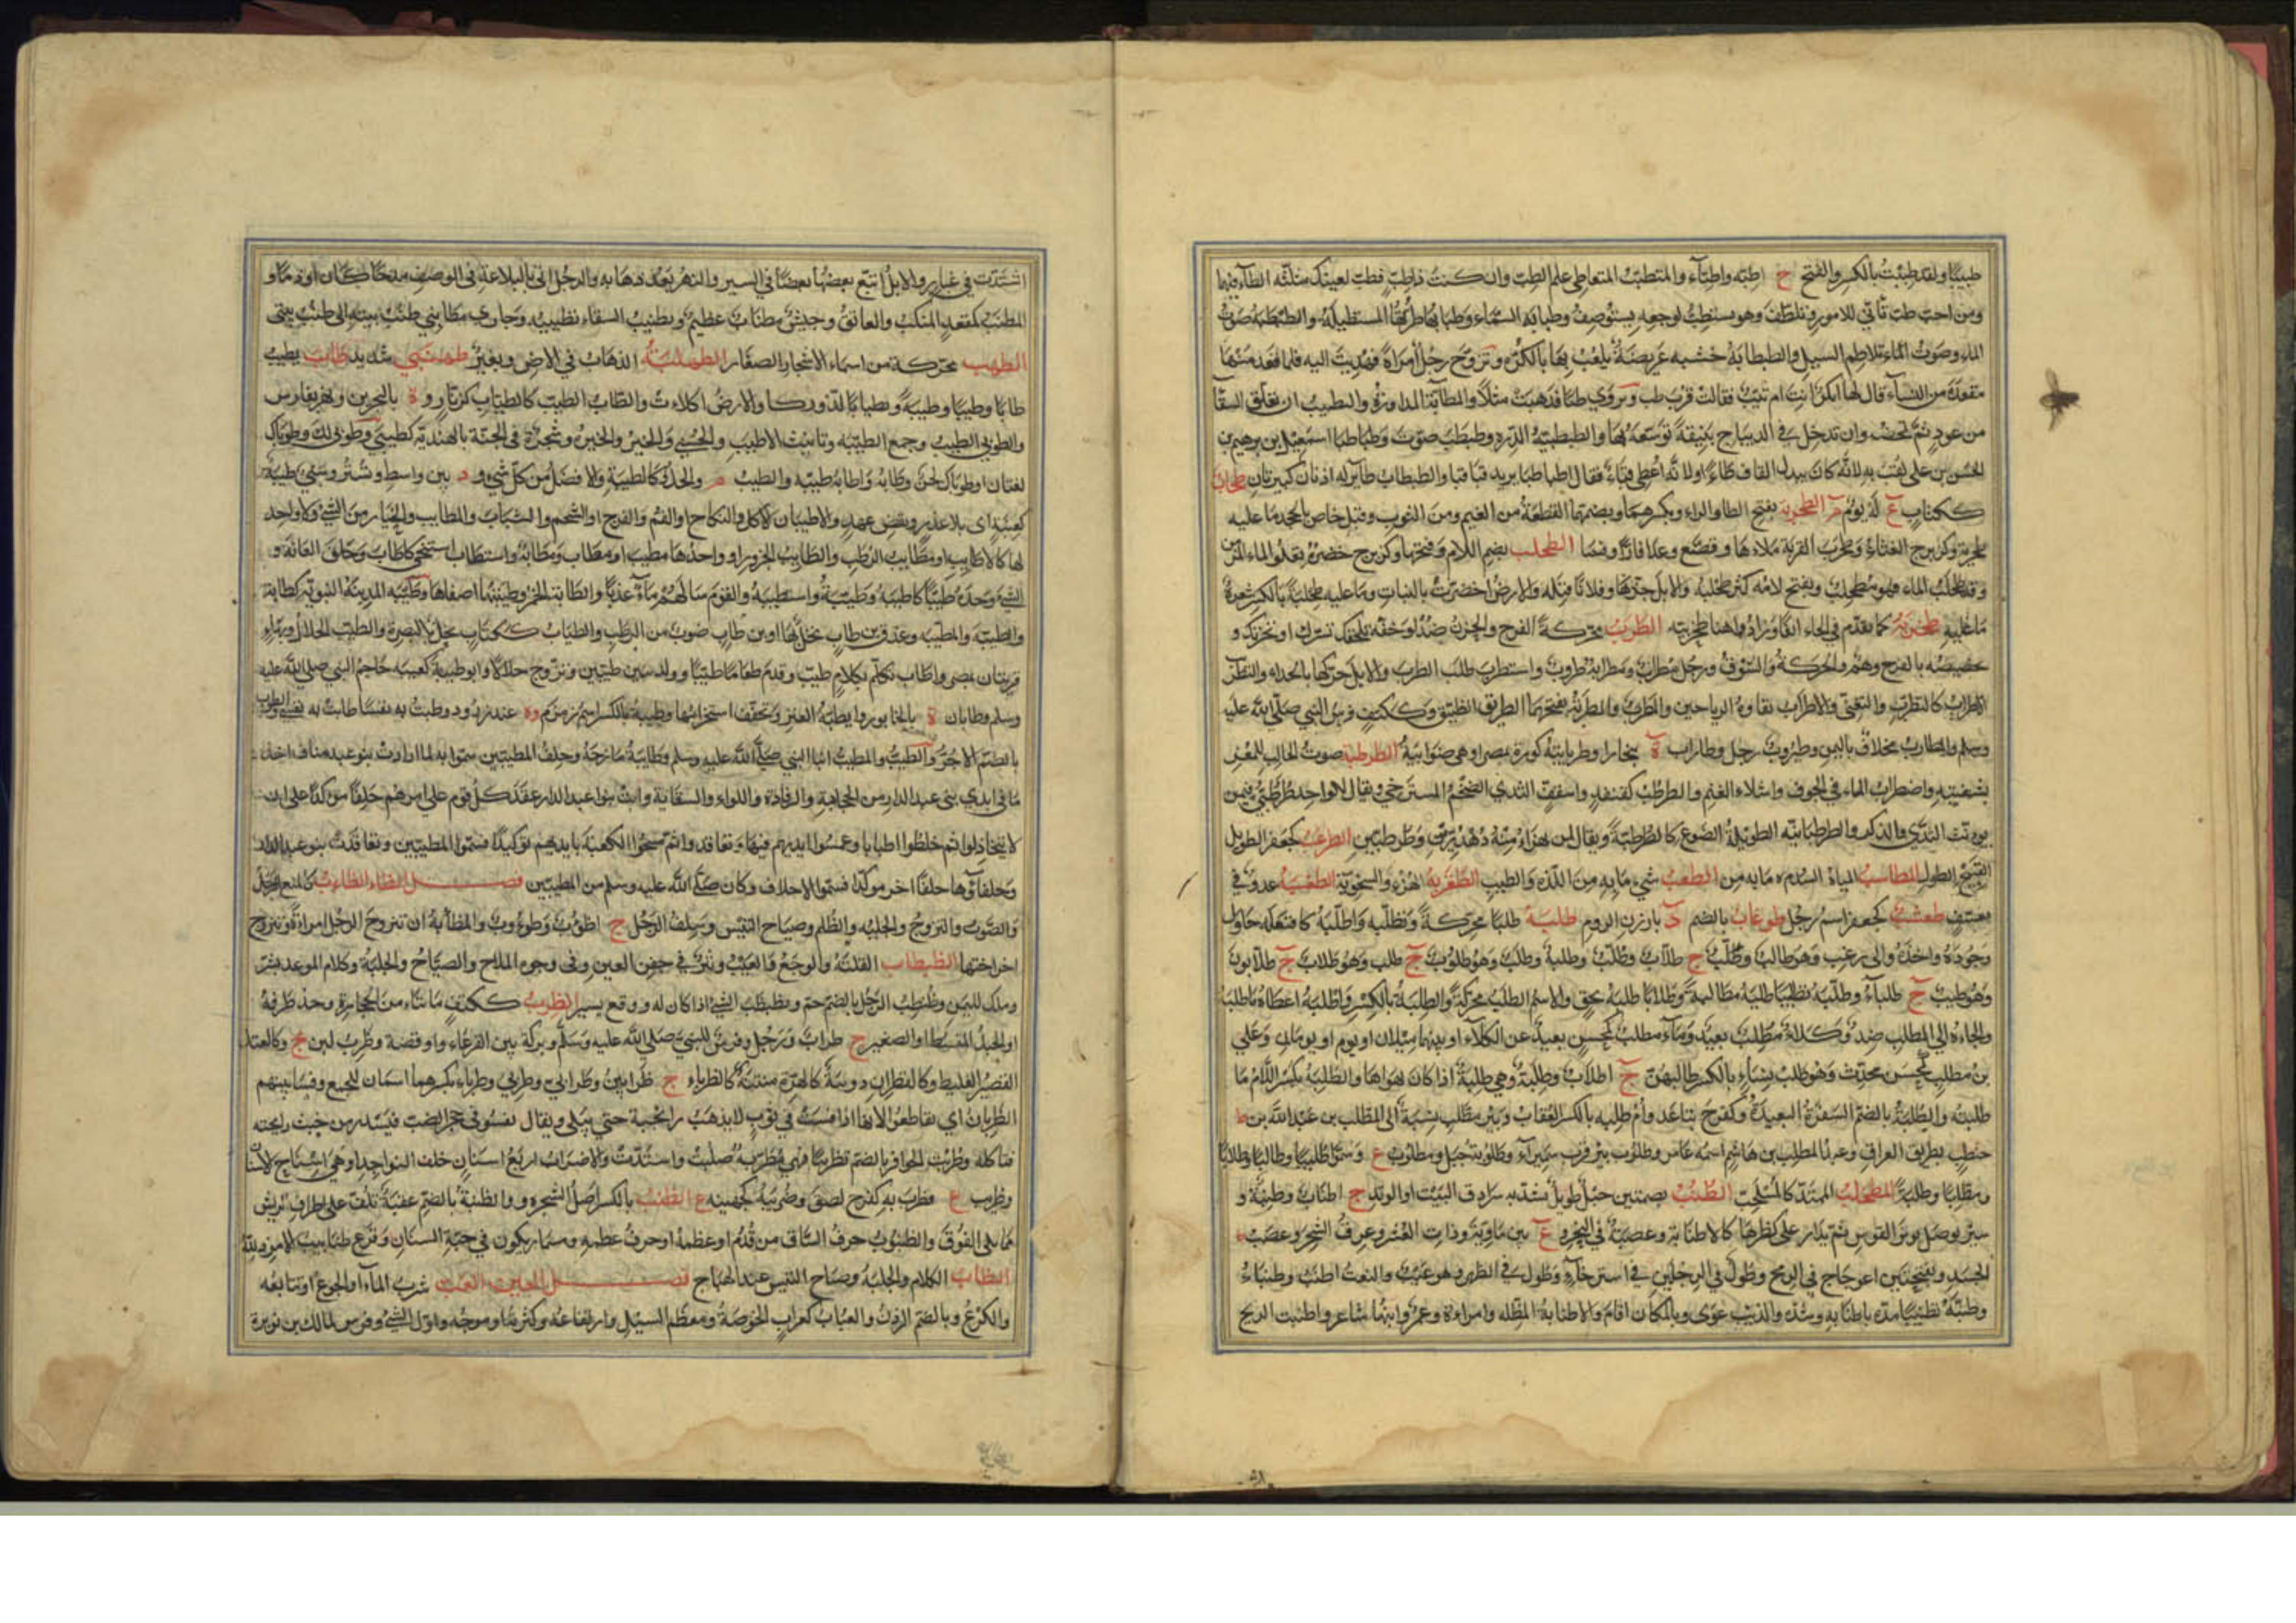 طبيبًا ولقد طببت بالكسر والفتح ج اطبه واطبآء والمتطبب المتعاطي علم الطب وان كنت ذا طب فطب لعينك مثلثه الطآء فيهما
ومن احب طب تأتي للامور وتلطف وهو يستطب لوجعه يستوصف وطبابة السماء وطبابها طرتها المستطيلة والطبطبة صوت
الماء وصوت تلاطم السيل والطبطابة خشبه عريضة يلعب بها بالكره وتزوج رجل امراة فهديت اليه فلما قعد منها
مقعده من النسآء قال لها ابكر انت ام ثيب فقالت قرب طب ويروي طبا فذهبت مثلا والمطابة المداورة والتطبيب ان تعلق السقآ
من عود ثم تمخضه وان تدخل في الديباج بنيقة توسعه بها والطبطبية الدره وطبطب صوت وطباطبا اسمعيل بن ابرهيم بن
الحسن بن علي لقب به لانه كان يبدل القاف طاء او لانه اعطي قباء فقال طباطبا يريد قباقبا والطبطاب طاير له اذنان كبيرتان طحاب
ككتاب ع له يوم م الطحربة بفتح الطا والراء وبكسرهما وبضمهما القطعة من الغيم ومن الثوب وقيل خاص بالجحد ما عليه
طحربة وكزبرج الغثاء وطحرب القربة ملاءها وقصع وعدا فارا وفسا الطحلب بضم اللام وفتحها وكزبرج خضرة تعلو الماء المزمن
وقد طحلب الماء فهو مطحلب وبفتح لامه كثر طحلبه والابل جزها وفلانا قتله والارض اخضرت بالنبات وما عليه طحلبة بالكسر شعرة
ما عليه طخربة كما تقدم في الحاء انفا ويزاد هاهنا طخربيه الطرب محركة الفرح والحزن ضد او خفة تلحقك تسرك او تحزنك و
تخصيصه بالفرح وهم والحركة والشوق ورجل مطراب ومطرابة طروب واستطرب طلب الطرب والابل حركها بالحداء والتطريب
الاطراب كالتطرب والتغني والاطراب نقاوة الرياحين والمطرب والمطربة بفتحهما الطريق الضيق وككتف فرس النبي صلي الله عليه
وسلم والمطارب مخلاف باليمن وطيروب رجل وطاراب ة ببخارا وطرابية كورة بمصر او هي ضرابية الطرطبة صوت الحالب للمعز
بشفتيه واضطراب الماء في الجوف واشلاء الغنم والطرطب كقنفذ واسقف الثدي الضخم المسترخي ويقال للواحد طرطبي فيمن
يونث الثدي والذكر والطرطبانية الطويلة الضرع كالطرطبة ويقال لمن يهزاء منه دهدرين وطرطبين الطرعب كجعفر الطويل
القبيح الطول المطاسب المياة السدم ما به من الطعب شيء ما به من اللذه والطيب الطعزبة الهزء والسخرية الطعسبة عدو في
تعسف طعشب كجعفر اسم رجل طوغاب بالضم د بارزن الروم طلبة طلبا محركة وتطلبه واطلبة كافتعله حاول
وجوده واخذه والي رغب وهو طالب وطلب ج طلاب وطلب وطلبة وطلب وهو طلوب ج طلب وهو طلاب ج طلابون
وهو طليب ج طلبآء وطلبه تطليبا طلبة مطالبة وطلابا طلبة بحق والاسم الطلب محركة والطلبة بالكسر واطلبة اعطاه ما طلبة
والجاءه الي المطلب ضد وكلاء مطلب بعيد ومآء مطلب كمحسن بعيد عن الكلاء او بينهما ميلان او يوم او يومان وعلي
بن مطلب كمحسن محدث وهو طلب نسآء بالكسر طالبهن ج اطلاب وطلبة وهي طلبة اذا كان يهواها والطلبة بكسر اللام ما
طلبته والطلبة بالضم السفرة البعيدة وكفرح تباعد وام طلبه بالكسر العقاب وبئر مطلب نسبة الي المطلب بن عبد الله بن
حنطب بطريق العراق وعبد المطلب بن هاشم اسمه عامر وطلوب بئر قرب سميراء وطلوبة جبل ومطلوب ع وسموا طليبا وطالبا وطلابا
ومطلبا وطلبة المطحلب الممتد كالمسلحب الطنب بضمتين حبل طويل يشد به سرادق البيت او الوتد ج اطناب وطنبة و
سير يوصل بوتر القوس ثم يدار على كظرها كالاطنابة وعصبة في النحر و ع بين ماوية وذات العشر وعرق الشجر وعصب
الجسد وبفتحتين اعوجاج في الرمح وطول في الرجلين في استرخاء وطول في الظهر وهو عيب والنعت اطنب وطنباء
وطنبه تطنيبا مده باطنابه وشده والذيب عوى وبالمكان اقام والاطنابة المظله وامراءة وعمرو ابنها شاعر واطنبت الريح
اشتدت في غبار والابل اتبع بعضها بعضا في السير والنهر بعد ذهابه والرجل اتي بالبلاغة في الوصف مدحا كان او ذما و
المطنب كمقعد المنكب والعاتق وجيش مطناب عظيم وتطنيب السقاء تطبيبه وجاري مطانبي طنب بيته الي طنب بيتي
الطهب محركة من اسماء الاشجار الصغار الطهلبة الذهاب في الارض وبعير طهنبي شديد طاب يطيب
طابا وطيبا وطيبة وتطيابا لذ وزكا والارض اكلاءت والطاب الطيب كالطياب كزنار و ة بالبحرين ونهر بفارس
والطوبي الطيب وجمع الطيبه وتانيث الاطيب والحسني والخير والخيرة وشجرة في الجنة بالهندية كطيبي وطوبي لك وطوباك
لغتان او طوباك لحن وطابه واطابه طيبه والطيب م والحل كالطيبة والافضل من كل شي و د بين واسط وتستر وسبي طيبة
كعنبة اي بلا غدر ونقض عهد والاطيبان الاكل والنكاح او الفم والفرج او الشحم والشباب والمطايب والخيار من الشيء ولا واحد
لها كالاطايب او مطايب الرطب واطايب الجزور او واحدها مطيب او مطاب ومطابة واستطاب استنجي كاطاب وحلق العانة و
الشيء وجده طيبا كاطيبه وطيبه واستطيبه والقوم سالهم مآء عذبا والطابة الخمر وطيبتها اصفاها وطيبه المدينة النبوية كطابة
والطيبة والمطيبه وعذق بن طاب نخل بها او بن طاب ضرب من الرطب والطياب ككتاب نخل بالبصرة والطيب الحلال وبهاء
قريتان بمصر واطاب تكلم بكلام طيب وقدم طعاما طيبا وولد بنين طيبين وتزوج حلالا وابو طيبة كعيبه حاجم النبي صلي الله عليه
وسلم وطابان ة بالخابور وايطبة العنز وتخفف استحرامها وطيبة بالكسر اسم زمزم و ة عند زرود وطبت به نفسا طابت به نفسي والطوب
بالضم الاجر والطيب والمطيب ابنا النبي صلي الله عليه وسلم وطايبة مازحة وحلف المطيبين سموا به لما ارادت بنو عبد مناف اخذ
ما في ايدي بني عبد الدار من الحجابة والرفادة واللواء والسقاية وابت بنوا عبد الدار عقد كل قوم علي امرهم حلفا موكدا علي ان
لا يتخاذلوا ثم خلطوا اطيابا وغمسوا ايديهم فيها وتعاقدوا ثم مسحوا الكعبة بايديهم توكيدا فسموا المطيبين وتعاقدت بنو عبد الدار
وحلفاؤها حلفا اخر موكدا فسموا الاحلاف وكان صلي الله عليه وسلم من المطيبين فصل الظاء الظاءب كالمنع الزجل
والصوت والتزوج والجلبه والظلم وصياح التيس وسلف الرجل ج اظؤب وظوءوب والمظاءبة ان تتزوج الرجل امراة وتتزوج
اخر اختها الظبظاب القلبة والوجع والعيب وبثر في جفن العين وفي وجوه الملاح والصياح والجلبة وكلام الموعد بشر
وملك لليمن وظبظب الرجل بالضم حم وتظبظب الشيء اذا كان له وقع يسير الظرب ككتف ما نتاء من الحجارة وحد طرفه
او الجبل المنبسط او الصغير ج ظراب ورجل وفرس للنبي صلي الله عليه وسلم وبركة بين القرعاء وواقصة وظرب لبن ع وكالعتل
القصير الغليظ وكالقطران دويبة كالهرة منتنة كالظرباء ج ظرابين وظرابي وظربي وظرباء بكسرهما اسمان للجمع وفسا بينهم
الظربان اي تقاطعوا لانها اذا فست في ثوب لا يذهب رائحية حتي يبلي ويقال تفسو في جحر الضب فيسدر من خبث رايحته
فتاكله وظربت الحوافر بالضم تظريبا فهي مظربة صلبت واشتدت والاضراب اربع اسنان خلف النواجد او هي اسناخ الاسنان
وظريب ع وظرب به كفرح لصق وضريبة كجهينه ع الظنب بالكسر اصل الشجره وو الظنبة بالضم عقبة تلف علي اطراف الريش
مما يلي الفوق والظنبوب حرف الساق من قدم او عظمة او حرف عظمه ومسمار يكون في جبة السنان وقرع ظنابيب الامر ذلله
الظاب الكلام والجلبة وصياح التيس عبد الهياج فصل العين العب شرب المآء او الجرع او تتابعه
والكرع وبالضم الردن والعباب كغراب الخوصة ومعظم السيل وارتفاعه وكثرته او موجه واول الشيء وفرس لمالك بن نويرة